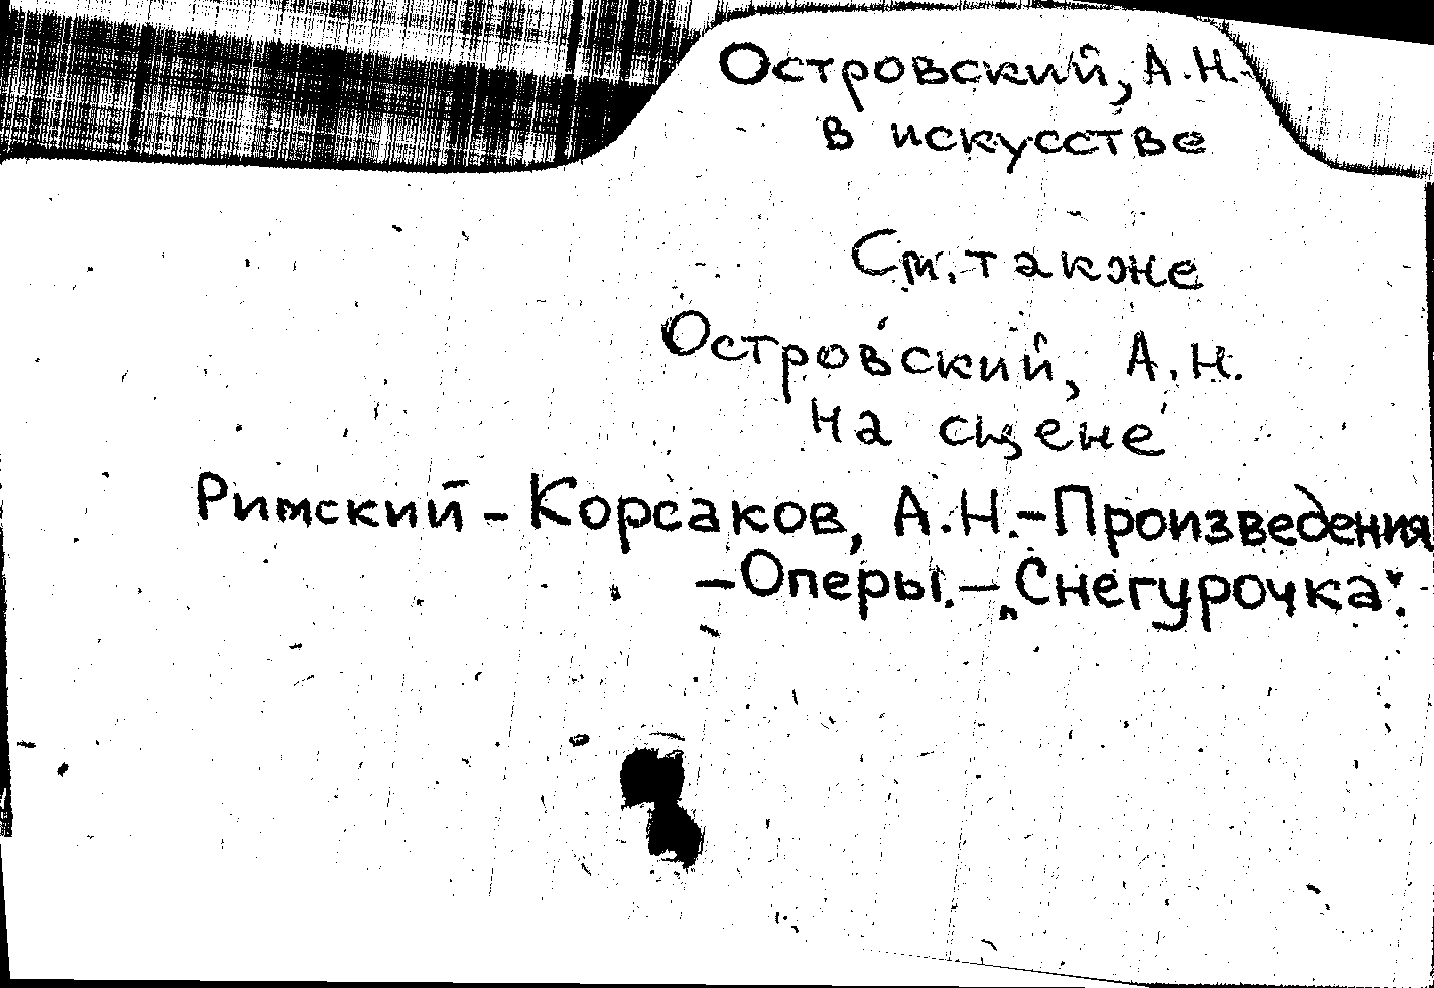 Островский, А.Н.
в искусстве
См. также
Островский, А.Н.
на сцене
Римский - Корсаков, А.Н.-Произведения
-Оперы.-„Снегурочка".